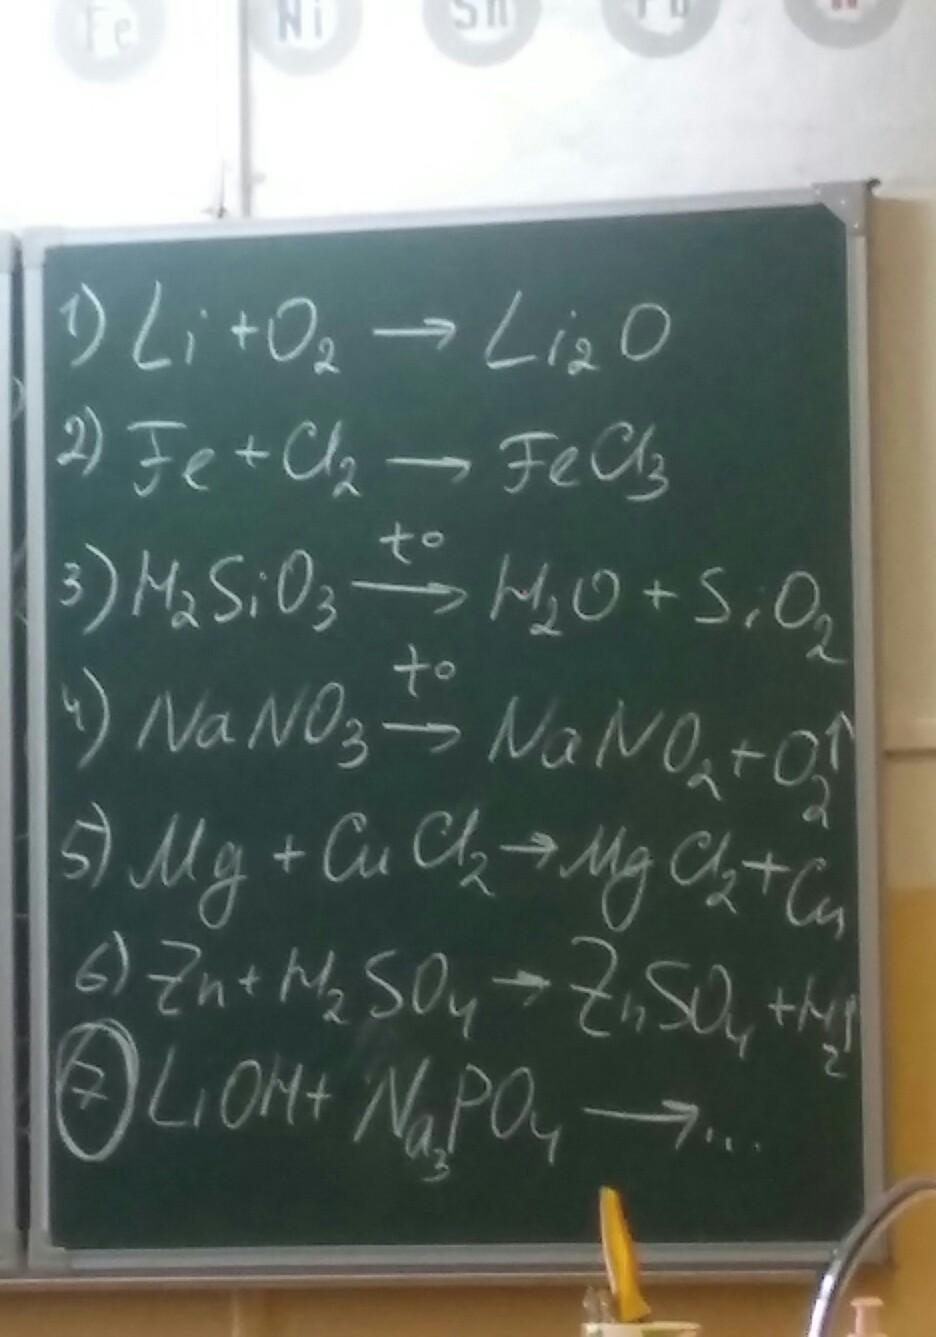 Fe Ni Sn Pb H
1) Li + O₂ → Li₂O
2) Fe + Cl₂ → FeCl₃
3) H₂SiO₃ t° → H₂O + SiO₂
4) NaNO₃ t° → NaNO₂ + O₂↑
5) Mg + CuCl₂ → MgCl₂ + Cu
6) Zn + H₂SO₄ → ZnSO₄ + H₂↑
7) LiOH + Na₃PO₄ → ...